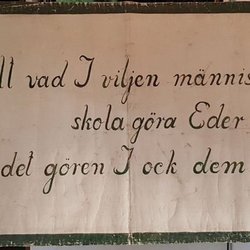 vad I viljen
skola göra Eder
det gören I ock dem